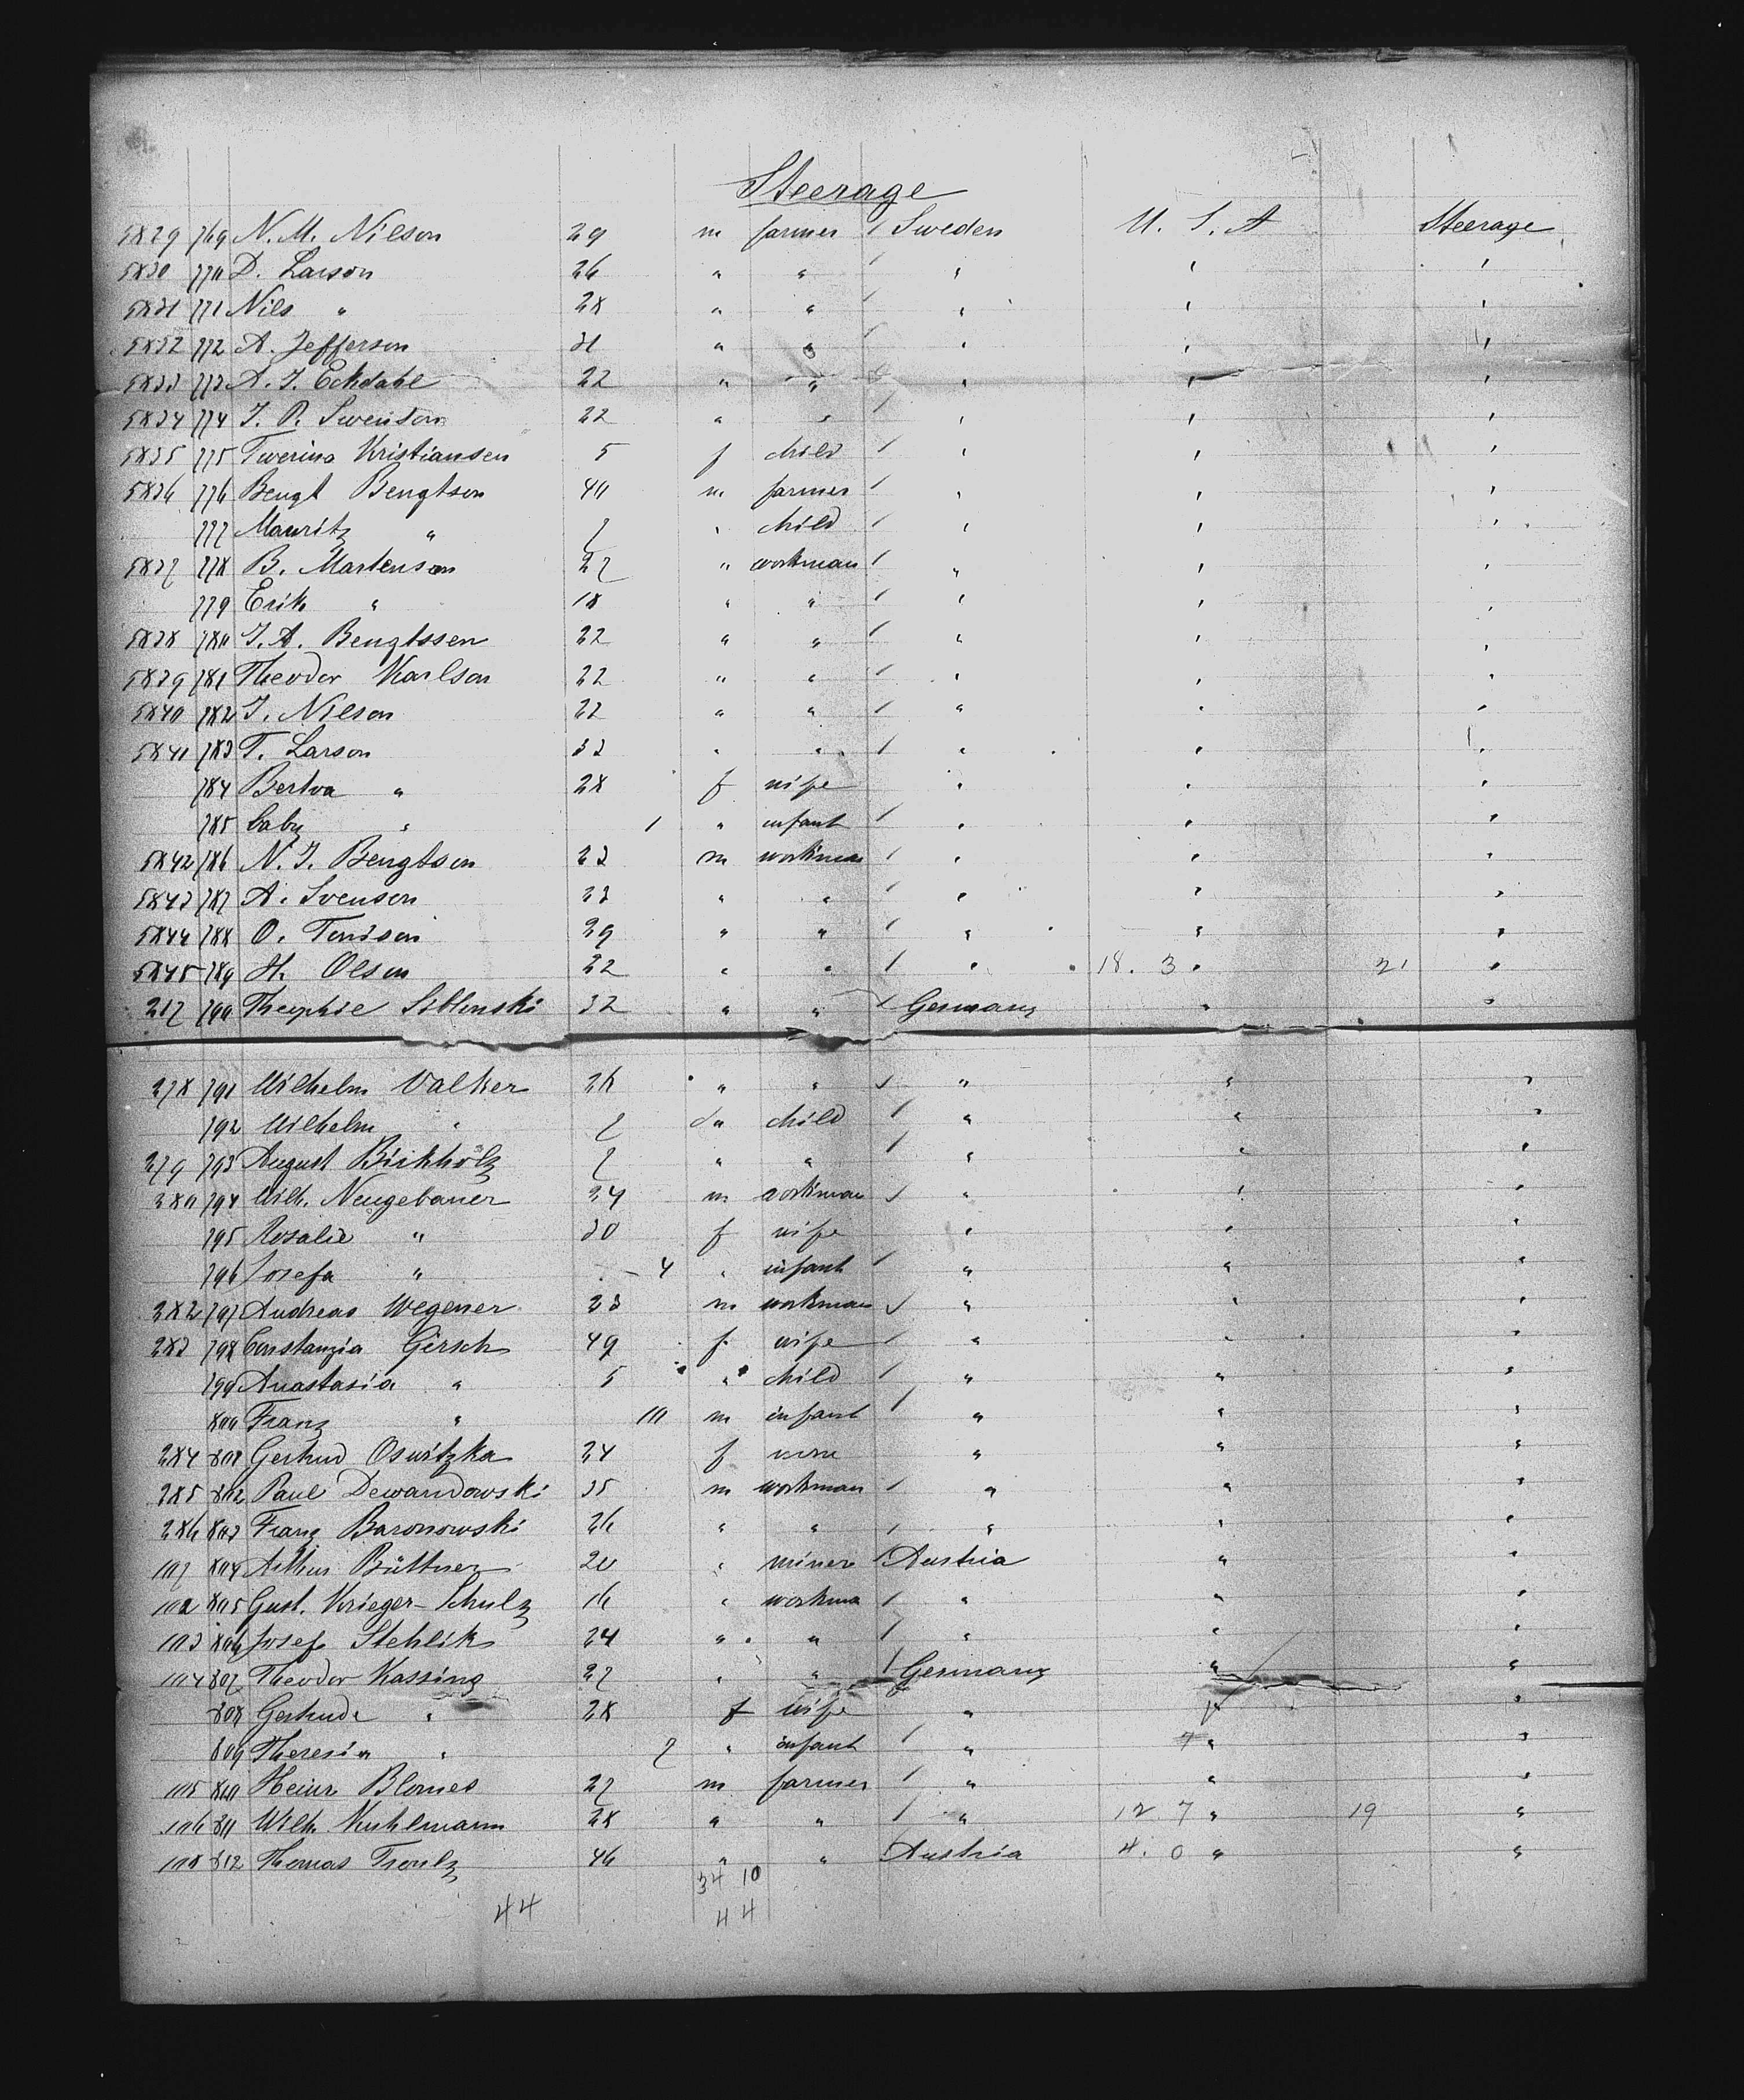 Steerage
5829 769 N. M. Nilson 29 m farmer / Sweden U. S. A Steerage
5830 770 D. Larson 26 " " / " " "
5831 771 Nils " 28 " " / " " "
5832 772 A. Jefferson 31 " " / " " "
5833 773 A. J. Eckdahl 22 " " " " "
5834 774 J. P. Swenson 22 " " / " " "
5835 775 Twerina Kristiansen 5 f child / " " "
5836 776 Bengt Bengtson 40 m farmer / " " "
777 Mauritz " 7 " child / " " "
5837 778 B. Martenson 27 " workman / " " "
779 Erik " 18 " " / " " "
5838 780 J. A. Bengtssen 22 " " / " " "
5839 781 Theodor Karlson 22 " " / " " "
5840 782 J. Nilson 22 " " / " " "
5841 783 T. Larson 33 " " / " " "
784 Bertva " 28 f wife " " "
785 baby " 1 " infant / " " "
5842 786 N. J. Bengtson 23 m workman / " " "
5843 787 A. Svenson 23 " " / " " "
5844 788 O. Tonison 29 " " / " " "
5845 789 H. Olson 22 " " / " 18. 3 " 21 "
217 790 Theophie 32 " " / Germany " "
278 791 Wilhelm Valker 28 " " / " " "
792 Wilhelm " 7 do child / " " "
279 793 August Birkholz 7 " " / " " "
280 794 Wilh. Neugebauer 34 m workman / " " "
795 Rosalie " 30 f wife " " "
796 Josefa " 4 " infant / " " "
282 797 Andreas Wegener 23 m workman / " " "
283 798 Constanzia Girsch 49 f wife / " " "
799 Anastasia " 5 " child / " " "
800 Franz " 10 m infant / " " "
284 801 Gertrud Oswitzka 24 f " " "
285 802 Paul Dewandowski 35 m workman / " " "
286 803 Franz Baronowski 26 " " / " " "
107 804 Arthur Büttner 20 " miner / Austria " "
102 805 Gust. Krieger-Schulz 16 " workma / " " "
103 806 Josef Stehlik 24 " " / " " "
104 807 Theodor Kassing 27 " " / Germany " "
808 Gertrude " 28 f wife " " "
809 Theresia " 7 " infant / " 7 " "
105 810 Heinr Blomes 27 m farmer / " " "
106 811 Wilh. Kuhlmann 28 " " / " 12 7 " 19 "
108 812 Thomas 46 " " Austria 4. 0 " "
34 10
44 44